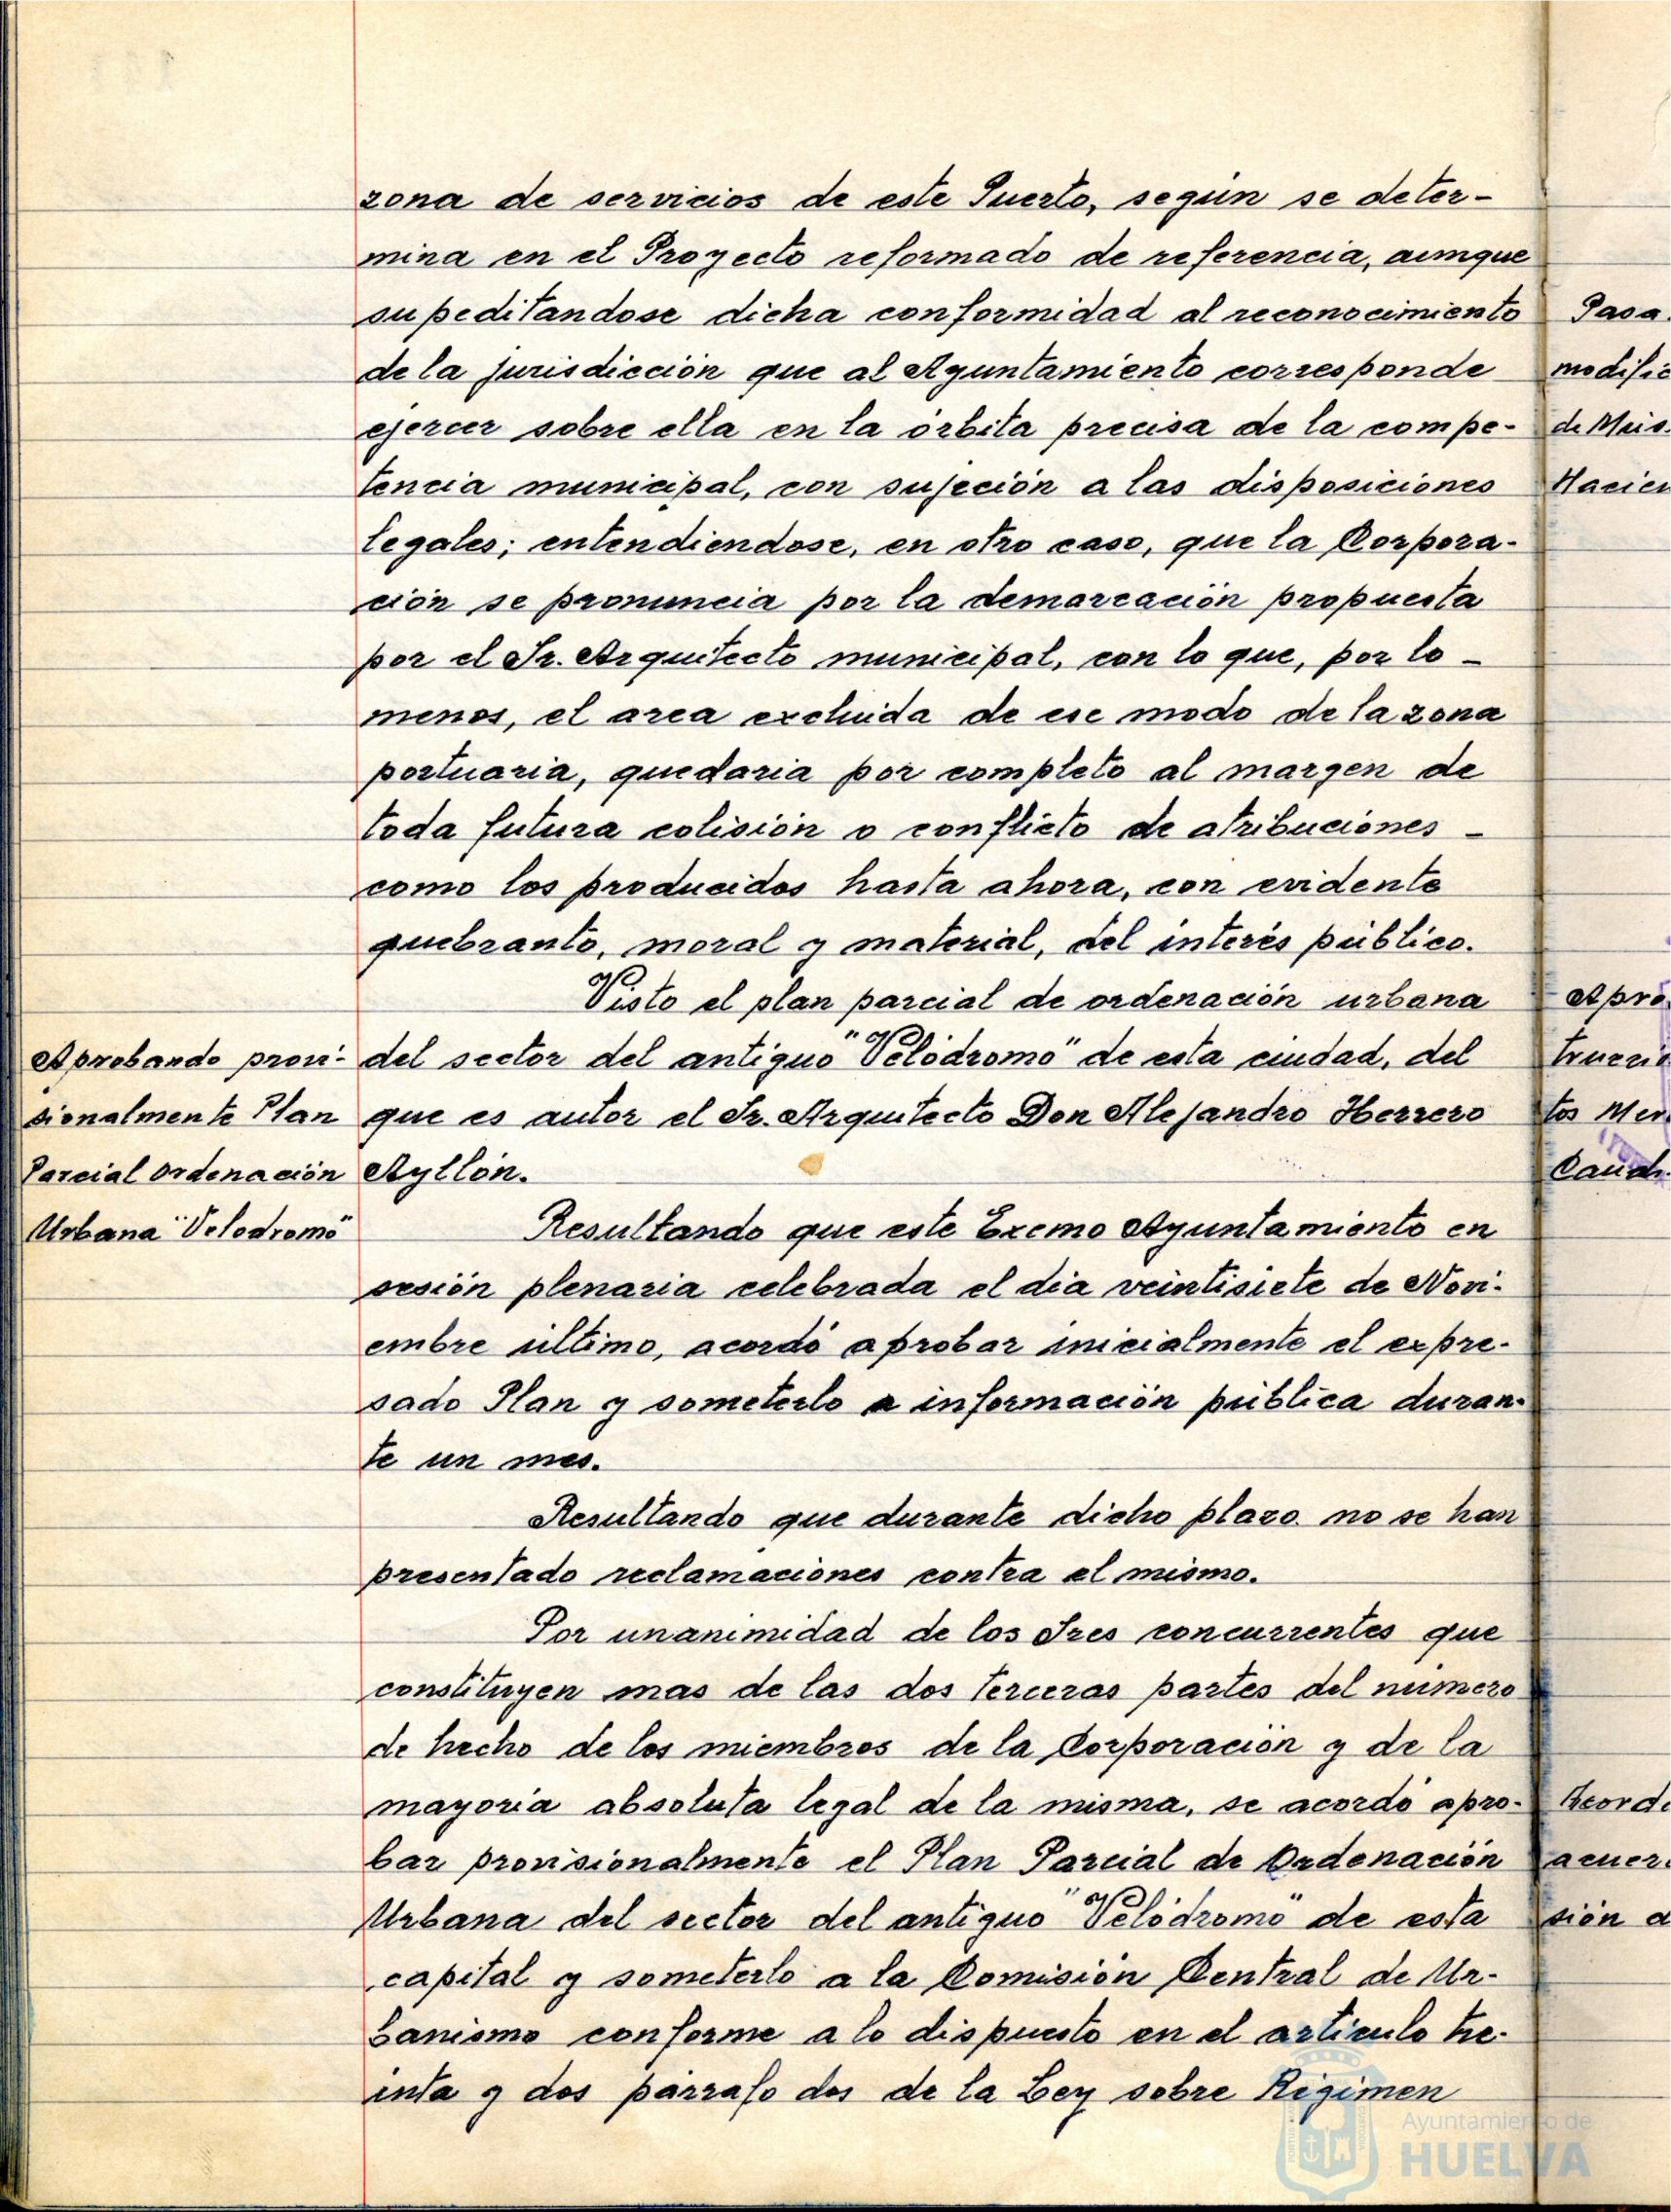 zona de servicios de este Puerto, según se deter-
mina en el Proyecto reformado de referencia, aunque
supeditandose dicha conformidad al reconocimiento
de la jurisdicción que al Ayuntamiento corresponde
ejercer sobre ella en la órbita precisa de la compe-
tencia municipal, con sujeción a las disposiciones
legales; entendiendose, en otro caso, que la Corpora-
ción se pronuncia por la demarcación propuesta
por el Sr. Arquitecto municipal, con lo que, por lo -
menos, el area excluida de ese modo de la zona
portuaria, quedaria por completo al margen de
toda futura colisión o conflicto de atribuciones -
como los producidos hasta ahora, con evidente
quebranto, moral y material, del interés público.
Visto el plan parcial de ordenación urbana
del sector del antiguo "Velódromo" de esta ciudad, del
que es autor el Sr. Arquitecto Don Alejandro Herrero
Ayllón.
Aprobando provi-
sionalmente Plan
Parcial Ordenación
Urbana "Velodromo"
Resultando que este Excmo Ayuntamiento en
sesión plenaria celebrada el dia veintisiete de Novi-
embre último, acordó aprobar inicialmente el expre-
sado Plan y someterlo a información pública duran-
te un mes.
Resultando que durante dicho plazo no se han
presentado reclamaciones contra el mismo.
Por unanimidad de los Sres concurrentes que
constituyen mas de las dos terceras partes del número
de hecho de los miembros de la Corporación y de la
mayoría absoluta legal de la misma, se acordó apro-
bar provisionalmente el Plan Parcial de Ordenación
Urbana del sector del antiguo "Velódromo" de esta
capital y someterlo a la Comisión Central de Ur-
banismo conforme a lo dispuesto en el artículo tre-
inta y dos párrafo dos de la Ley sobre Régimen
Pasa
modific
de
Hacien
Apro
tos Mer
acuer
sión a
Ayuntamiento de
HUELVA